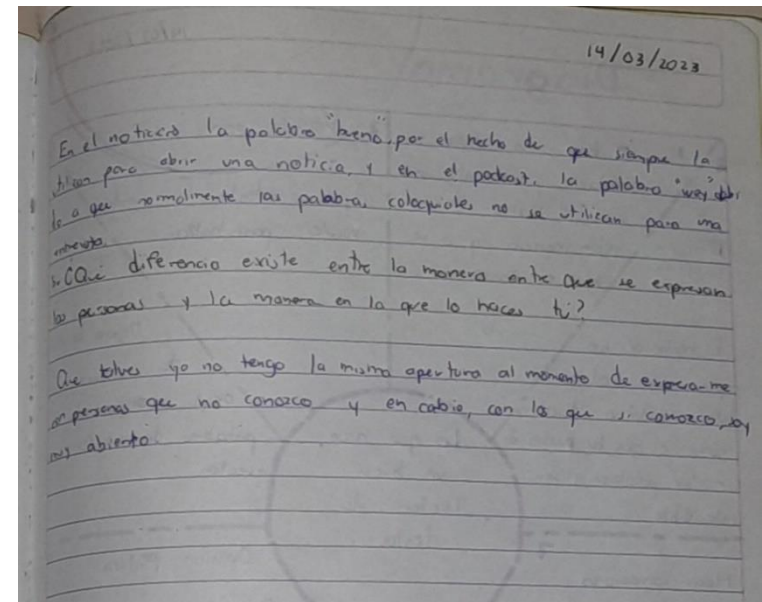 14/03/2023
En el noticero la palabra "bueno", por el hecho de que siempre la
utilizan para abrir una noticia, y en el podcast, la palabra "wey" debi
do a que normalmente las palabras coloquiales no se utilizan para una
entrevista.
¿Qué diferencia existe entre la manera entre que se expresan
las personas y la manera en la que lo haces tú?
Que talves yo no tengo la misma apertura al momento de expresarme
con personas que no conozco y en cabio, con los que si conozco, soy
abierto.